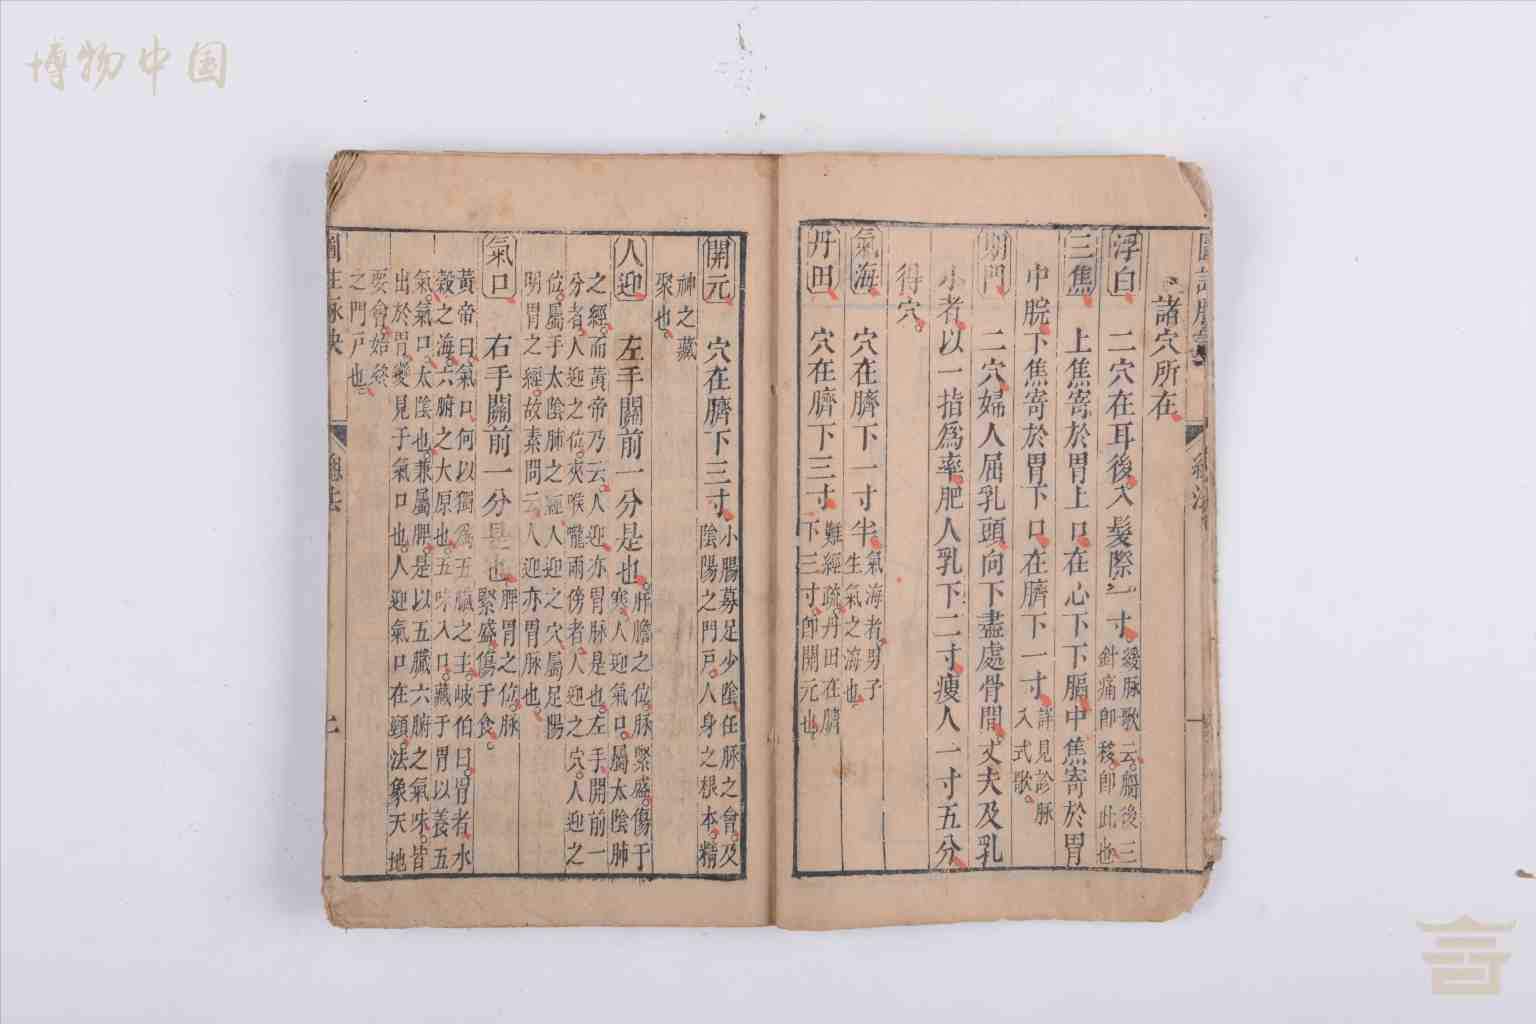 博物中国
諸穴所在
浮白 二穴在耳後入髮際一寸 緩脉歌云腦後三
針痛卽移卽此也
三焦 上焦寄於胃上口在心下下膈中焦寄於胃
中脘下焦寄於胃下口在臍下一寸 詳見診脉
入式歌
期門 二穴婦人屈乳頭向下盡處骨間丈夫及乳
小者以一指爲率肥人乳下二寸瘦人一寸五分
得穴
氣海 穴在臍下一寸半 氣海者男子
生氣之海也
丹田 穴在臍下三寸 難經疏丹田在臍
下三寸卽開元也
開元 穴在臍下三寸 小腸募足少陰任脉之會及
陰陽之門戶人身之根本精
神之藏
聚也
人迎 左手關前一分是也 肝膽之位脉緊盛傷于
寒人迎氣口屬太陰肺
之經而黃帝乃云人迎亦胃脉是也左手開前一
分者人迎之位夾喉嚨兩傍者人迎之穴人迎之
位屬手太陰肺之經人迎之穴屬足陽
明胃之經故素問云人迎亦胃脉也
氣口 右手關前一分是也 脾胃之位脉
緊盛傷于食
黃帝曰氣口何以獨爲五臟之主岐伯曰胃者水
穀之海六腑之大原也五味入口藏于胃以養五
氣氣口太陰也兼屬脾是以五臟六腑之氣味皆
出於胃變見于氣口也人迎氣口在頸法象天地
要會始終
之門戶也